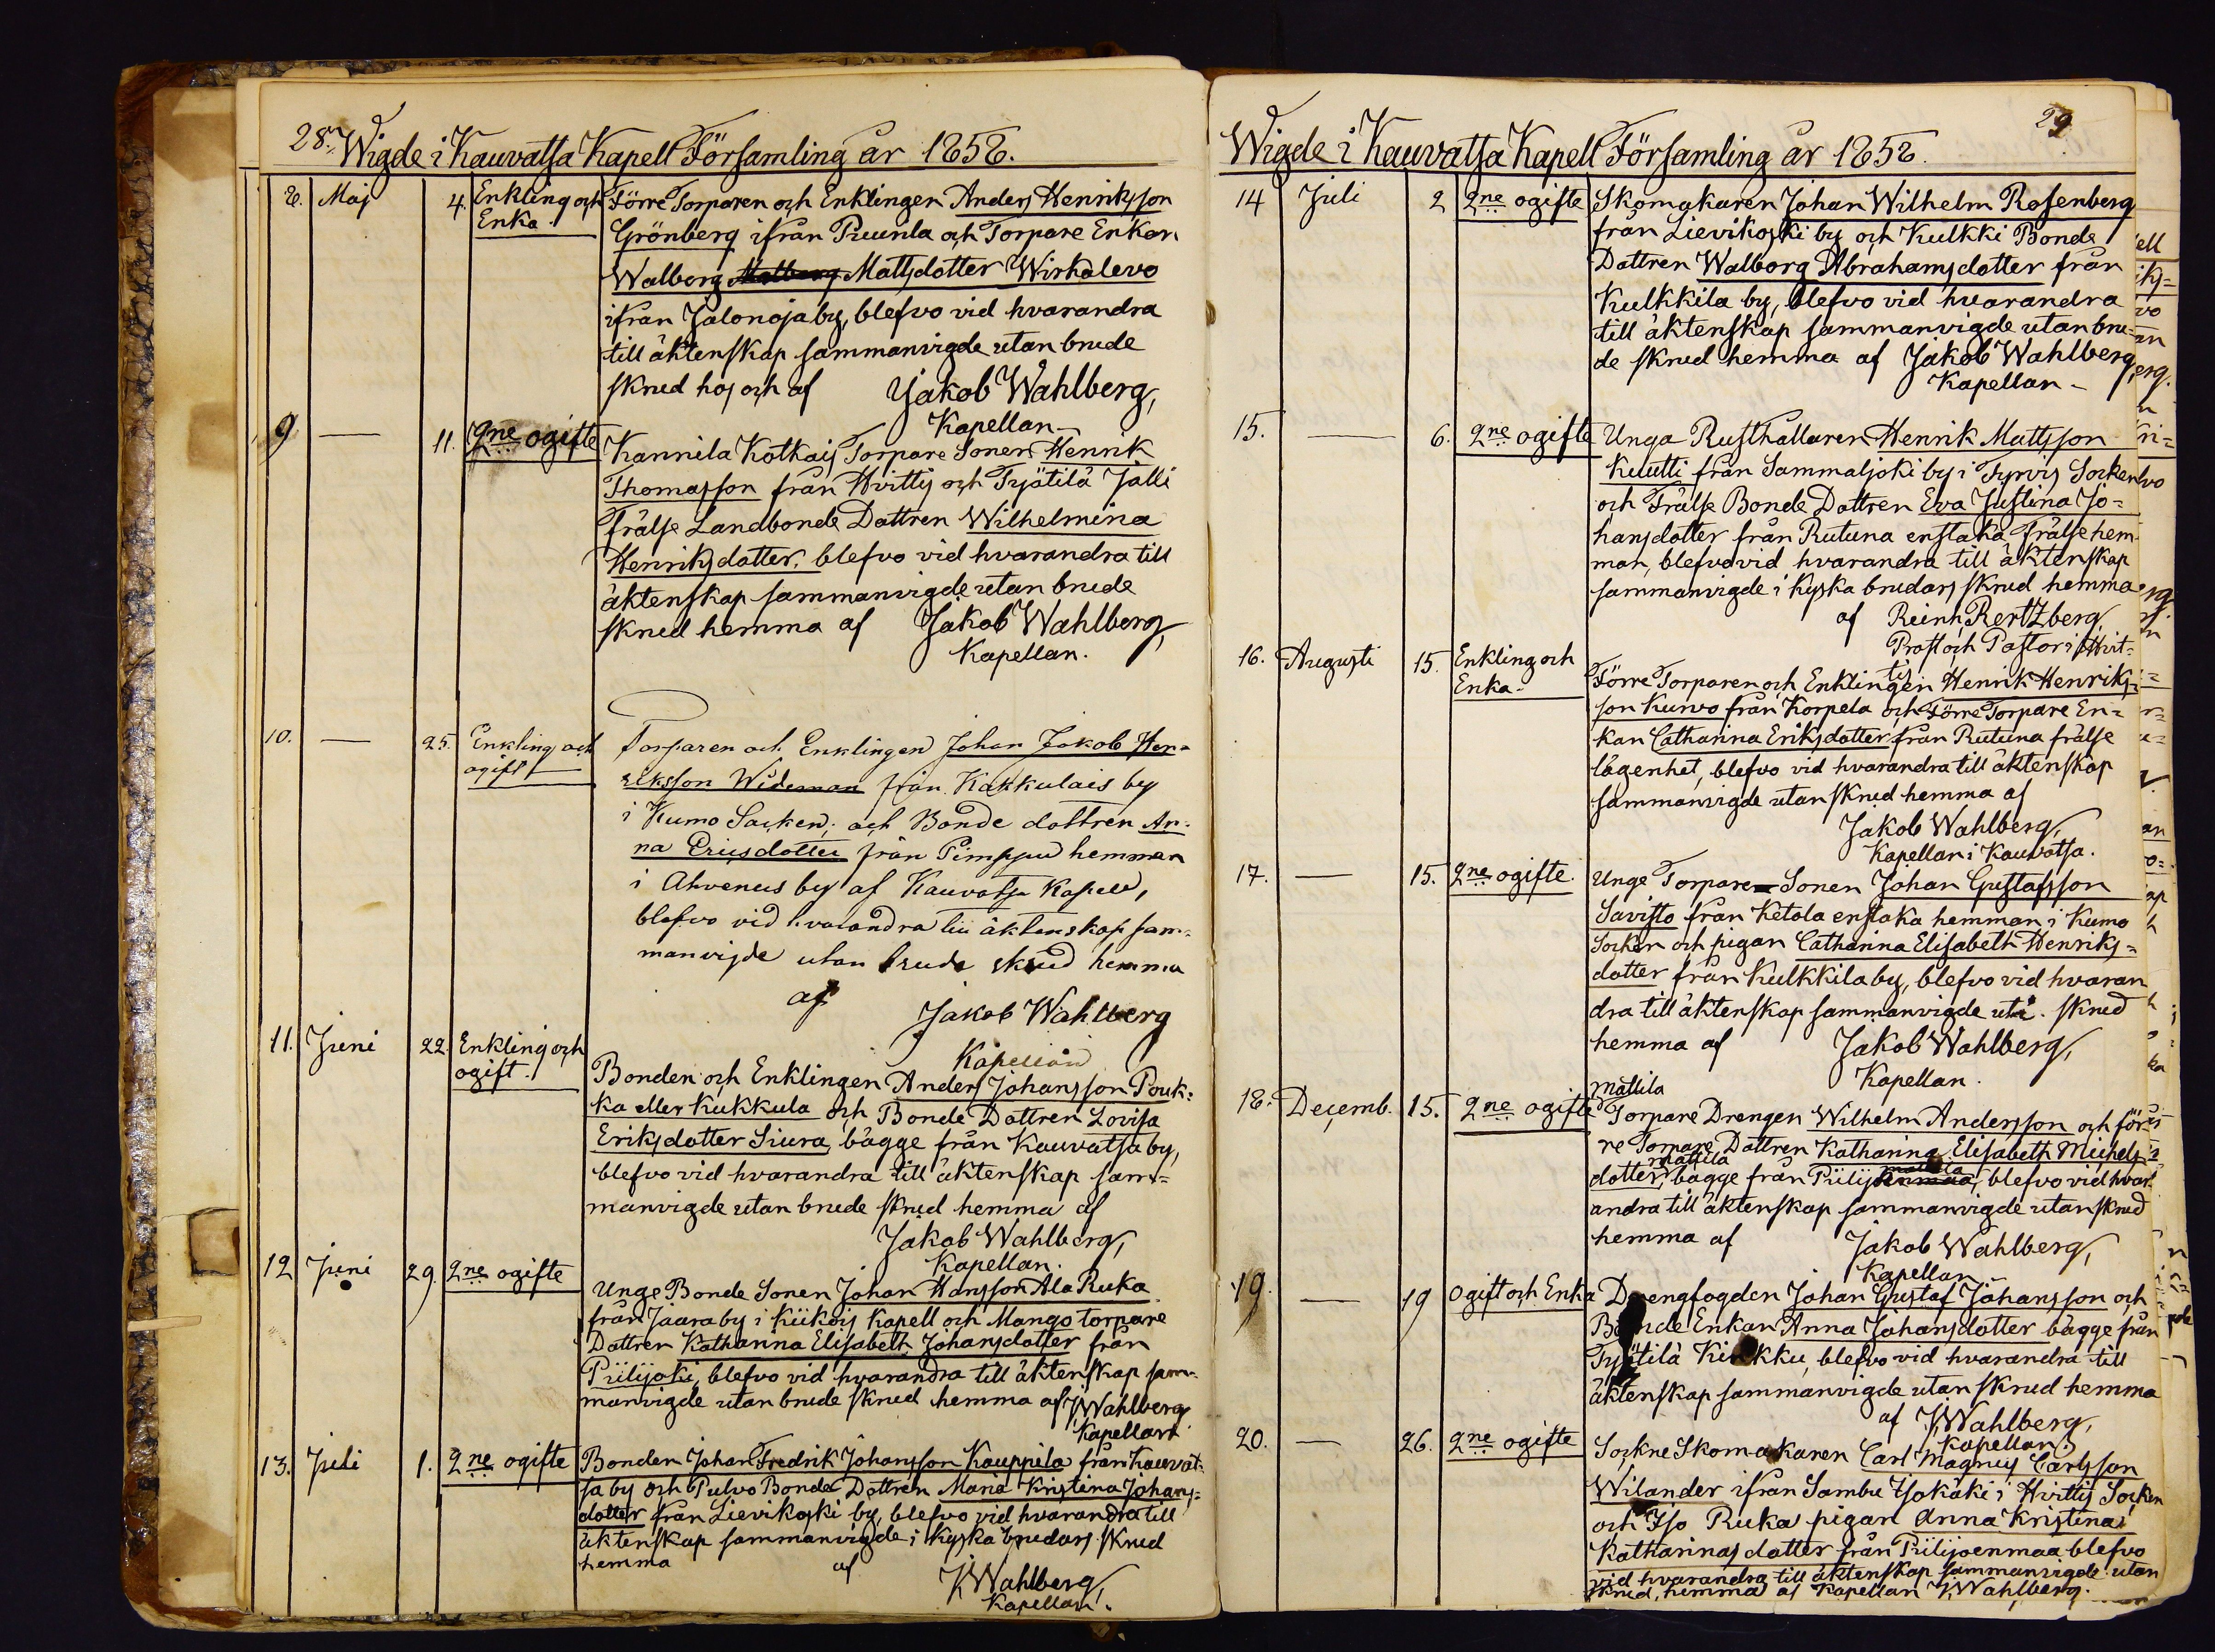 28. Wigde i Kauvatsa Kapell Församling år 1858.
8. Maj 4. Enkling och Enka.
Förre Torparen och Enklingen Anders Henriksson
Grönberg ifrån Puurla och Torpare Enkan
Walborg Malberg Mattsdotter Wirkalevo
ifrån Jalonoja by, blefvo vid hvarandra
till äktenskap sammanvigde utan brude
skrud hos och af Jakob Wahlberg,
Kapellan
9 — 11. 2ne ogifte
Kannila Kotkais Torpare Sonen Henrik
Thomasson från Hvittis och Työtilä Jalli
Frälse Landbonde Dottren Wilhelmina
Henriksdotter, blefvo vid hvarandra till
äktenskap sammanvigde utan brude
skrud hemma af Jakob Wahlberg
Kapellan.
10. — 25. Enkling och ogift
Torparen och Enklingen Johan Jakob Hen-
riksson Wideman från Kakkulais by
i Kumo Socken, och Bonde dottren An-
na Ericsdotter från Pimppu hemman
i Ahvenus by af Kauvatsa Kapell,
blefvo vid hvarandra till äktenskap sam-
manvigde utan brude skrud hemma
af Jakob Wahlberg
Kapellan
11. Juni 22. Enkling och ogift.
Bonden och Enklingen Anders Johansson Pouk-
ka eller Kukkula och Bonde Dottren Lovisa
Eriksdotter Siura, bägge från Kauvatsa by,
blefvo vid hvarandra till äktenskap sam-
manvigde utan brude skrud hemma af
Jakob Wahlberg,
Kapellan.
12 Juni 29. 2ne ogifte
Unge Bonde Sonen Johan Hansson Ala Ruka
från Jaara by i Kiikois Kapell och Mango torpare
Dottren Katharina Elisabeth Johansdotter från
Piilijoki, blefvo vid hvarandra till äktenskap sam-
manvigde utan brude skrud hemma af J. Wahlberg
Kapellan
13. Juli 1. 2ne ogifte
Bonden Johan Fredrik Johansson Kauppila från Kauvat-
sa by och Pulvo Bonde Dottren Maria Kristina Johans-
dotter från Lievikoski by, blefvo vid hvarandra till
äktenskap sammanvigde i Kyska brudars skrud
hemma af
J. Wahlberg,
Kapellan.
29
Wigde i Kauvatsa Kapell Församling år 1858.
14 Juli 2 2ne ogifte
Skomakaren Johan Wilhelm Rosenberg
från Lievikoski by och Kulkki Bonde
Dottren Walborg Abrahamsdotter från
Kulkkila by, blefvo vid hvarandra
till äktenskap sammanvigde utan bru-
de skrud hemma af Jakob Wahlberg,
Kapellan
15. — 6. 2ne ogifte
Unga Rusthållaren Henrik Mattsson
Kuutti från Sammaljoki by i Tyrvis Socken
och Frälse Bonde Dottren Eva Justina Jo-
hansdotter från Rutuna enstaka frälse hem-
man, blefvo vid hvarandra till äktenskap
sammanvigde i Kyska brudars skrud hemma
af Reinh. Rertzberg,
Prost och Pastor i Hvit-
tis
16. Augusti 15. Enkling och Enka.
Förre Torparen och Enklingen Henrik Henriks-
son Kurvo från Korpela och Förre Torpare En-
kan Catharina Eriksdotter från Rutuna frälse
lägenhet, blefvo vid hvarandra till äktenskap
sammanvigde utan skrud hemma af
Jakob Wahlberg,
Kapellan i Kauvatsa.
17. — 15. 2ne ogifte
Unge Torpare Sonen Johan Gustafsson
Savisto från Ketola enstaka hemman i Kumo
Socken och pigan Catharina Elisabeth Henriks-
dotter från Kulkkila by, blefvo vid hvaran
dra till äktenskap sammanvigde uta. skrud
hemma af Jakob Wahlberg,
Kapellan.
18. Decemb. 15. 2ne ogifte
Mattila
Torpare Drengen Wilhelm Andersson och för-
re Torpare Dottren Katharina Elisabeth Michels
mattila mattila
dotter, bägge från Piilijoenmaa, blefvo vid hvar-
andra till äktenskap sammanvigde utan skrud
hemma af Jakob Wahlberg,
Kapellan
19. — 19 Ogift och Enka
Drengfogden Johan Gustaf Johansson och
Bonde Enkan Anna Johansdotter bägge från
Työtilä blefvo vid hvarandra till
äktenskap sammanvigde utan skrud hemma
af J. Wahlberg,
Kapellan
20. — 26. 2ne ogifte
Sockne Skomakaren Carl Magnus Carlsson
Wilander ifrån Sambu Isokäki i Hvittis Socken
och Iso Ruka pigan Anna Kristina
Katharinas dotter från Piilijoenmaa blefvo
vid hvarandra till äktenskap sammanvigde utan
skrud, hemma af Kapellan J. Wahlberg.